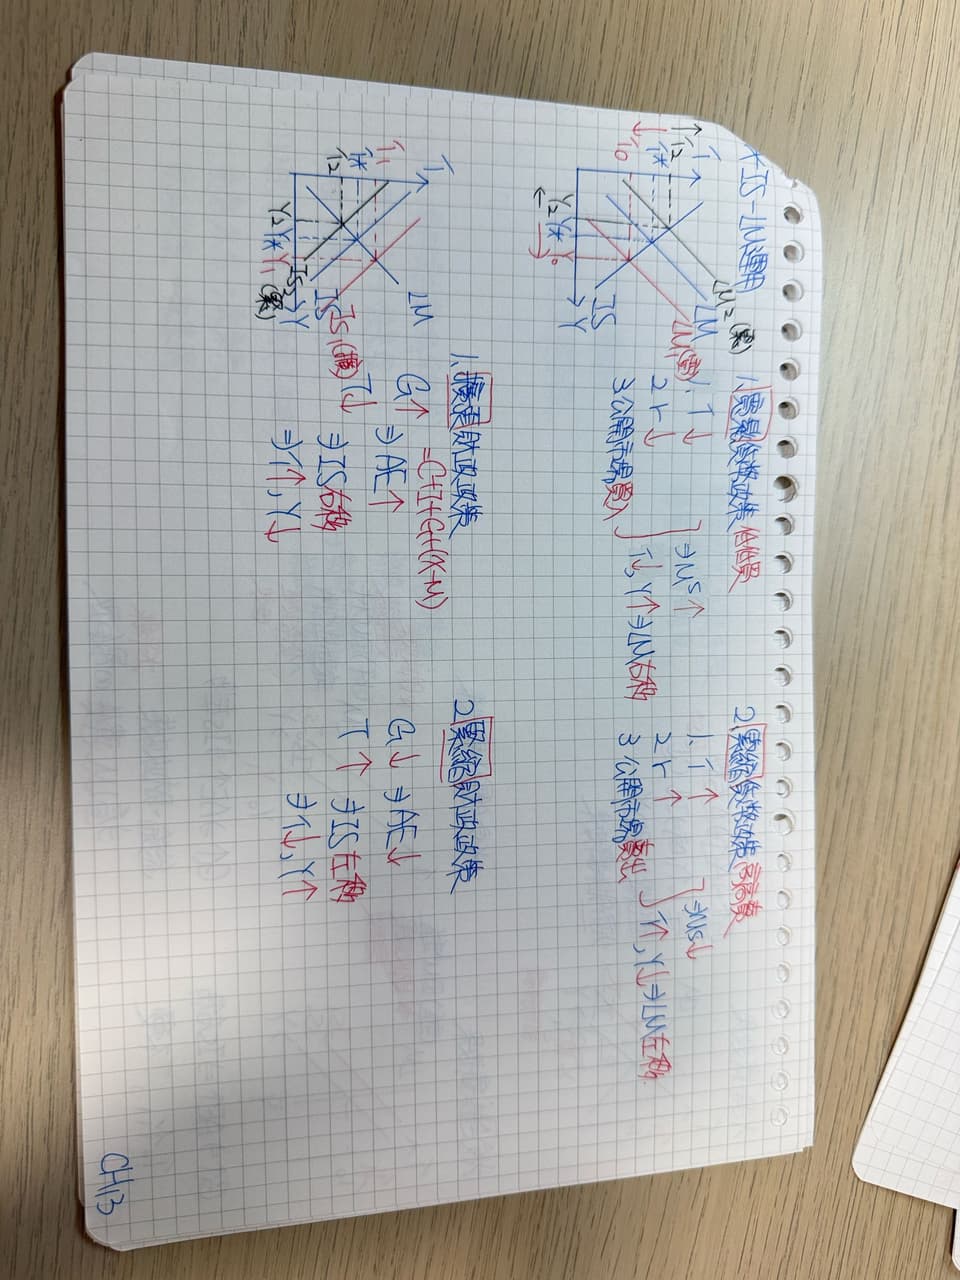 *IS-LM運用
i
i2
i*
i0
Y2 Y* Y0
Y
LM2(緊)
LM
LM1(寬)
IS
1.寬鬆貨幣政策 低低買
1. i↓
2. r↓
3.公開市場買入
⇒Ms↑
i↓, Y↑⇒LM右移
2.緊縮貨幣政策 高高賣
1. i↑
2. r↑
3.公開市場賣出
⇒Ms↓
i↑, Y↓⇒LM左移
i
i1
i*
i2
Y2 Y* Y1
Y
LM
IS1(擴)
IS
IS2(緊)
1.擴張財政政策
=C+I+G+(X-M)
G↑ ⇒AE↑
T↓ ⇒IS右移
⇒i↑, Y↓
2.緊縮財政政策
G↓ ⇒AE↓
T↑ ⇒IS左移
⇒i↓, Y↑
CH13